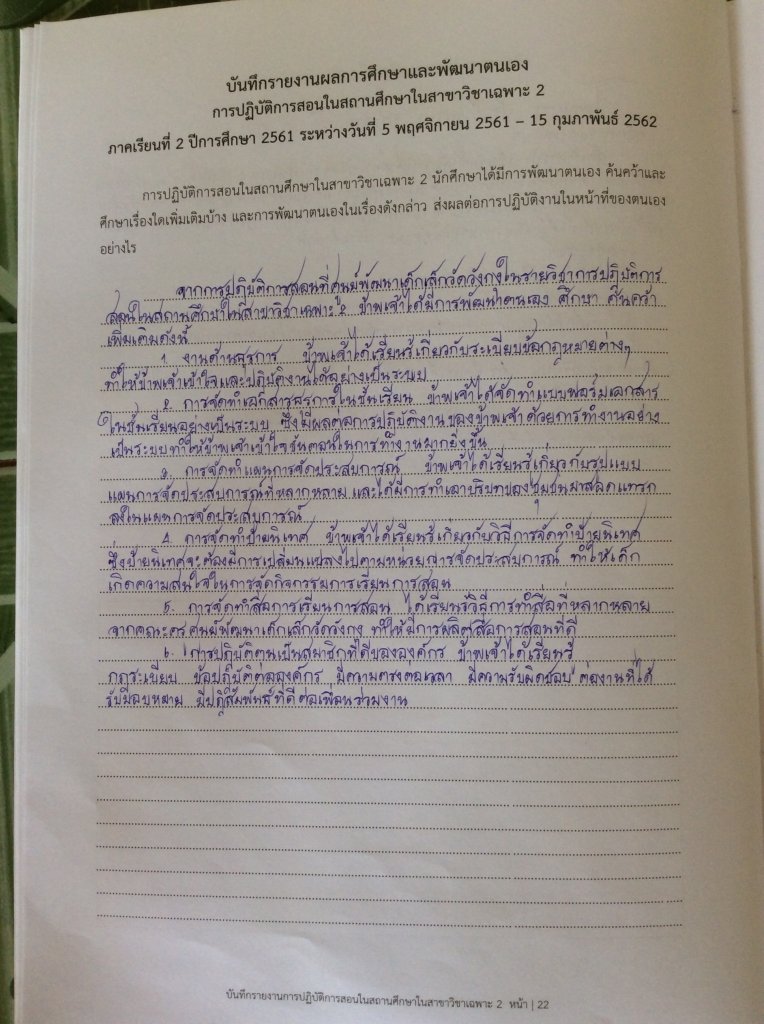 บันทึกรายงานผลการศึกษาและพัฒนาตนเอง
การปฏิบัติการสอนในสถานศึกษาในสาขาวิชาเฉพาะ 2
ภาคเรียนที่ 2 ปีการศึกษา 2561 ระหว่างวันที่ 5 พฤศจิกายน 2561 – 15 กุมภาพันธ์ 2562
การปฏิบัติการสอนในสถานศึกษาในสาขาวิชาเฉพาะ 2 นักศึกษาได้มีการพัฒนาตนเอง ค้นคว้าและ
ศึกษาเรื่องใดเพิ่มเติมบ้าง และการพัฒนาตนเองในเรื่องดังกล่าว ส่งผลต่อการปฏิบัติงานในหน้าที่ของตนเอง
อย่างไร
จากการปฏิบัติการสอนที่ศูนย์พัฒนาเด็กเล็กวัดวังกุงในรายวิชาการปฏิบัติการ
สอนในสถานศึกษาในสาขาวิชาเฉพาะ 2 ข้าพเจ้าได้มีการพัฒนาตนเอง ศึกษา ค้นคว้า
เพิ่มเติมดังนี้
1. งานด้านธุรการ ข้าพเจ้าได้เรียนรู้เกี่ยวกับระเบียบข้อกฎหมายต่างๆ
ทำให้ข้าพเจ้าเข้าใจและปฏิบัติงานได้อย่างเป็นระบบ
2. การจัดทำเอกสารธุรการในชั้นเรียน ข้าพเจ้าได้จัดทำแบบฟอร์มเอกสาร
ในชั้นเรียนอย่างเป็นระบบ ซึ่งมีผลต่อการปฏิบัติงานของข้าพเจ้า ด้วยการทำงานอย่าง
เป็นระบบทำให้ข้าพเจ้าเข้าใจขั้นตอนในการทำงานมากยิ่งขึ้น
3. การจัดทำแผนการจัดประสบการณ์ ข้าพเจ้าได้เรียนรู้เกี่ยวกับรูปแบบ
แผนการจัดประสบการณ์ที่หลากหลาย และได้มีการทำเอาบริบทของชุมชนมาสอดแทรก
ลงในแผนการจัดประสบการณ์
4. การจัดทำป้ายนิเทศ ข้าพเจ้าได้เรียนรู้เกี่ยวกับวิธีการจัดทำป้ายนิเทศ
ซึ่งป้ายนิเทศจะต้องมีการเปลี่ยนแปลงไปตามหน่วยการจัดประสบการณ์ ทำให้เด็ก
เกิดความสนใจในการจัดกิจกรรมการเรียนการสอน
5. การจัดทำสื่อการเรียนการสอน ได้เรียนรู้วิธีการทำสื่อที่หลากหลาย
จากคณะครูศูนย์พัฒนาเด็กเล็กวัดวังกุง ทำให้มีการผลิตสื่อการสอนที่ดี
6. การปฏิบัติตนเป็นสมาชิกที่ดีขององค์กร ข้าพเจ้าได้เรียนรู้
กฎระเบียบ ข้อปฏิบัติต่อองค์กร มีความตรงต่อเวลา มีความรับผิดชอบ ต่องานที่ได้
รับมอบหมาย มีปฏิสัมพันธ์ที่ดีต่อเพื่อนร่วมงาน
บันทึกรายงานการปฏิบัติการสอนในสถานศึกษาในสาขาวิชาเฉพาะ 2 หน้า | 22